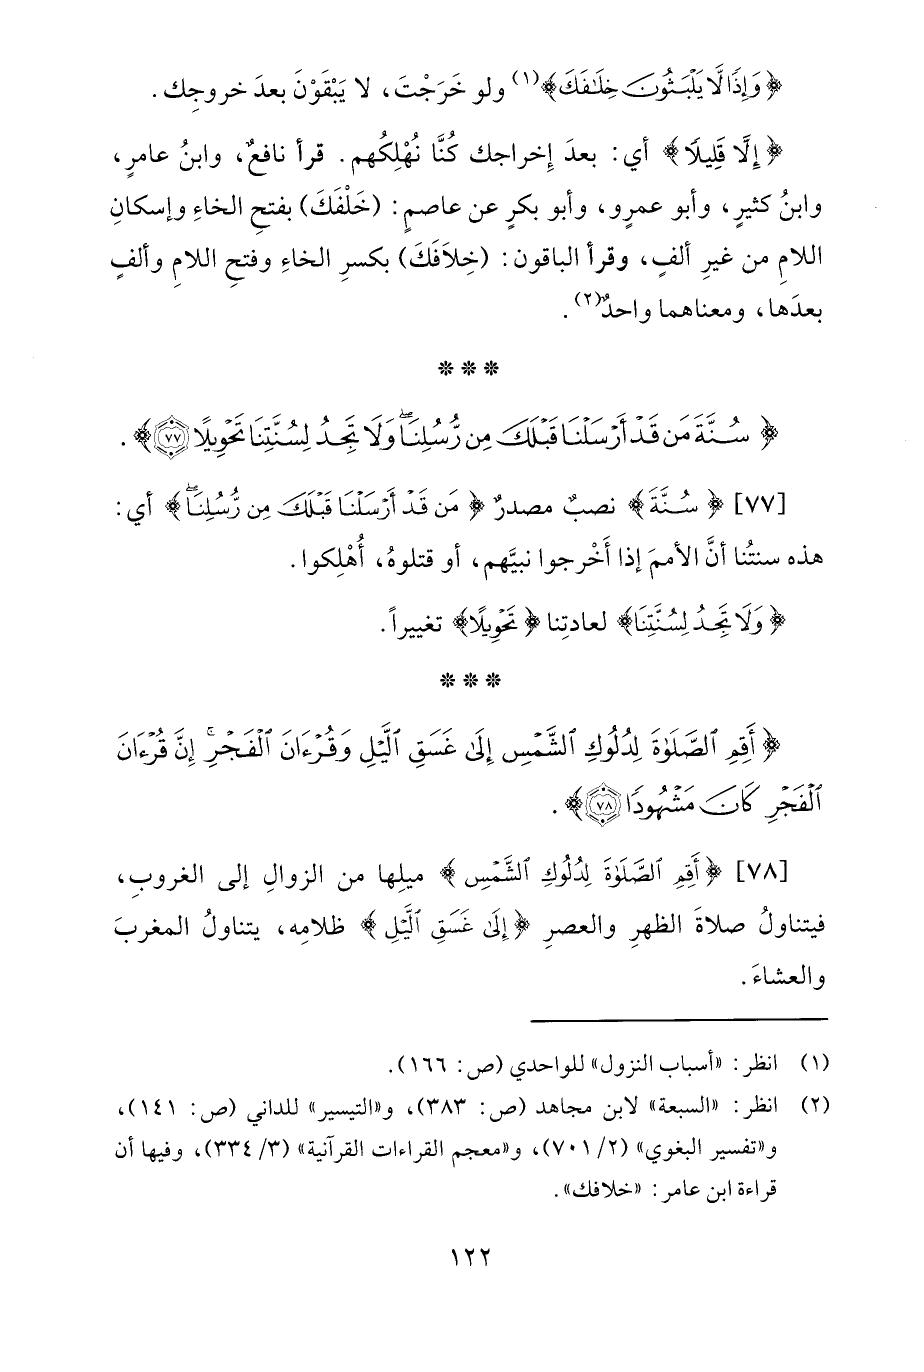 ﴿وَإِذًا لَّا يَلْبَثُونَ خِلَٰفَكَ﴾(١) ولو خَرَجْتَ، لا يَبْقَوْنَ بعدَ خروجِك .
﴿إِلَّا قَلِيلًا﴾ أي: بعدَ إخراجك كُنَّا نُهْلِكُهم. قرأ نافعٌ، وابنُ عامرٍ،
وابنُ كثيرٍ، وأبو عمرٍو، وأبو بكرٍ عن عاصمٍ: (خَلْفَكَ) بفتحِ الخاءِ وإسكانِ
اللامِ من غيرِ ألفٍ، وقرأ الباقون: (خِلاَفَكَ) بكسرِ الخاءِ وفتحِ اللامِ وألفٍ
بعدَها، ومعناهما واحدٌ(٢).
***
﴿سُنَّةَ مَن قَدْ أَرْسَلْنَا قَبْلَكَ مِن رُّسُلِنَا ۖ وَلَا تَجِدُ لِسُنَّتِنَا تَحْوِيلًا ٧٧﴾.
[٧٧] ﴿سُنَّةَ﴾ نصبٌ مصدرٌ ﴿مَن قَدْ أَرْسَلْنَا قَبْلَكَ مِن رُّسُلِنَا ۖ﴾ أي:
هذه سنتُنا أنَّ الأممَ إذا أَخْرجوا نبيَّهم، أو قتلوهُ، أُهْلِكوا.
﴿وَلَا تَجِدُ لِسُنَّتِنَا﴾ لعادتِنا ﴿تَحْوِيلًا﴾ تغييراً.
***
﴿أَقِمِ ٱلصَّلَوٰةَ لِدُلُوكِ ٱلشَّمْسِ إِلَىٰ غَسَقِ ٱلَّيْلِ وَقُرْءَانَ ٱلْفَجْرِ ۖ إِنَّ قُرْءَانَ
ٱلْفَجْرِ كَانَ مَشْهُودًا ٧٨﴾.
[٧٨] ﴿أَقِمِ ٱلصَّلَوٰةَ لِدُلُوكِ ٱلشَّمْسِ﴾ ميلِها من الزوالِ إلى الغروبِ،
فيتناولُ صلاةَ الظهرِ والعصرِ ﴿إِلَىٰ غَسَقِ ٱلَّيْلِ﴾ ظلامِه، يتناولُ المغربَ
والعشاءَ.
(١) انظر: «أسباب النزول» للواحدي (ص: ١٦٦).
(٢) انظر: «السبعة» لابن مجاهد (ص: ٣٨٣)، و«التيسير» للداني (ص: ١٤١)،
و«تفسير البغوي» (٢/ ٧٠١)، و«معجم القراءات القرآنية» (٣/ ٣٣٤)، وفيها أن
قراءة ابن عامر: «خلافك».
١٢٢